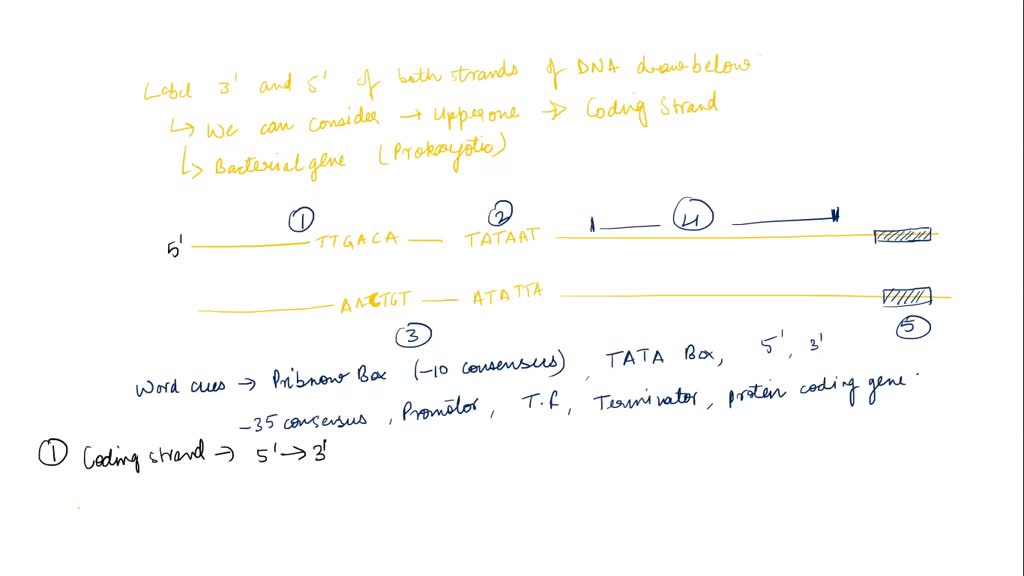 Label 3' and 5' of both strands of DNA draw below
↳ We can consider → Upper one → Coding Strand
↳ Bacterial gene (Prokaryotic)
① ② 4
5' TTGACA TATAAT
AACTGT ATATTA
③ 5
Word cues → Pribnow Box (-10 consensus), TATA Box, 5', 3'
-35 consensus, Promotor, T.f, Terminator, protein coding gene.
① Coding strand → 5' → 3'